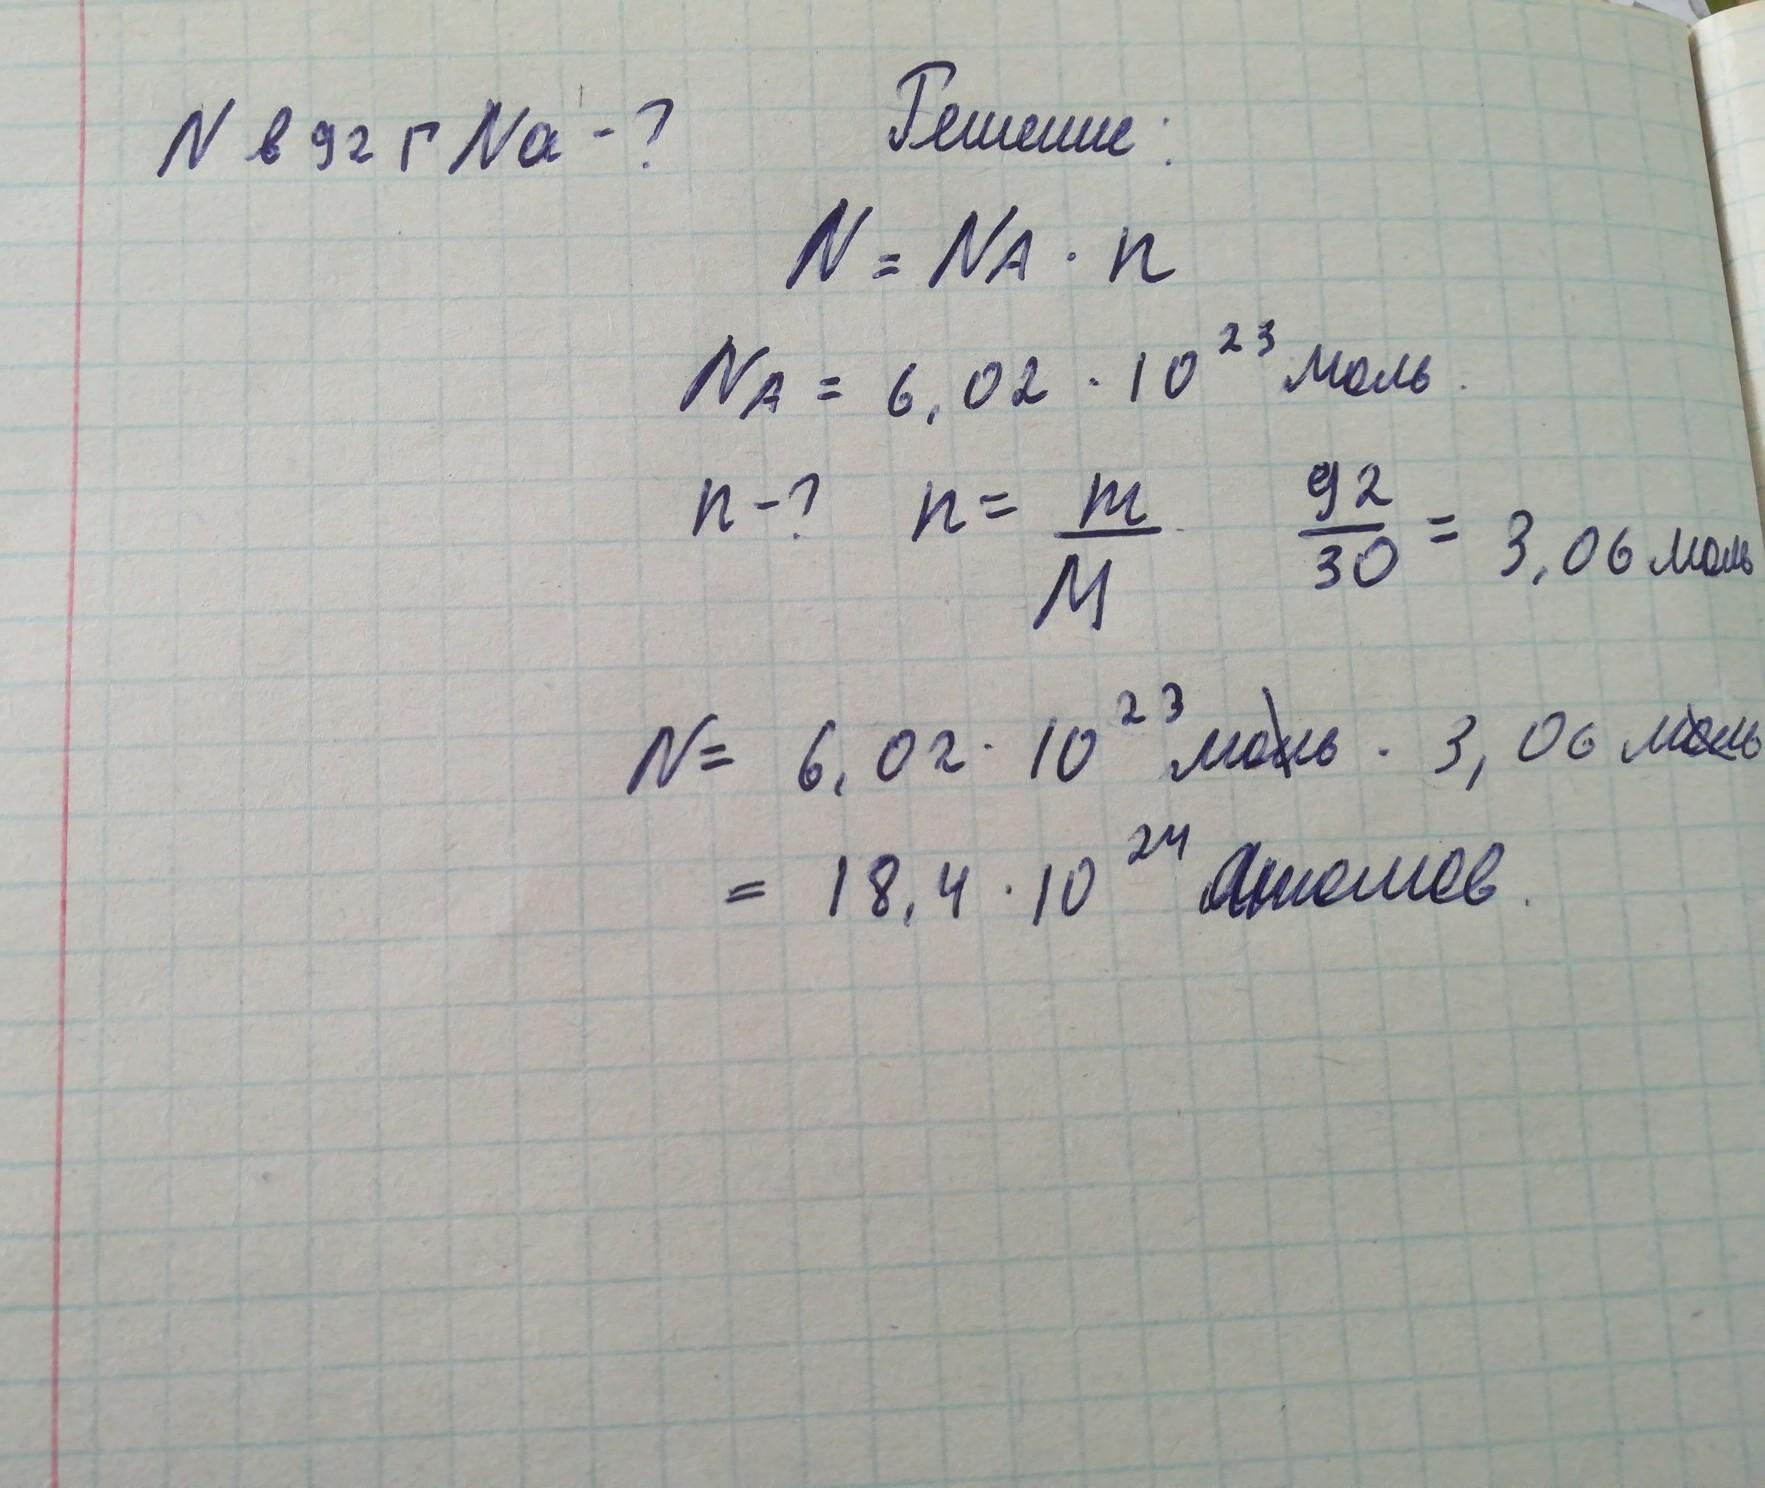 N в 92 г Na - ? Решение:
N = NA · n
NA = 6,02 · 10²³ моль.
n - ? n = m/M 92/30 = 3,06 моль
N = 6,02 · 10²³ моль · 3,06 моль
= 18,4 · 10²⁴ атомов.